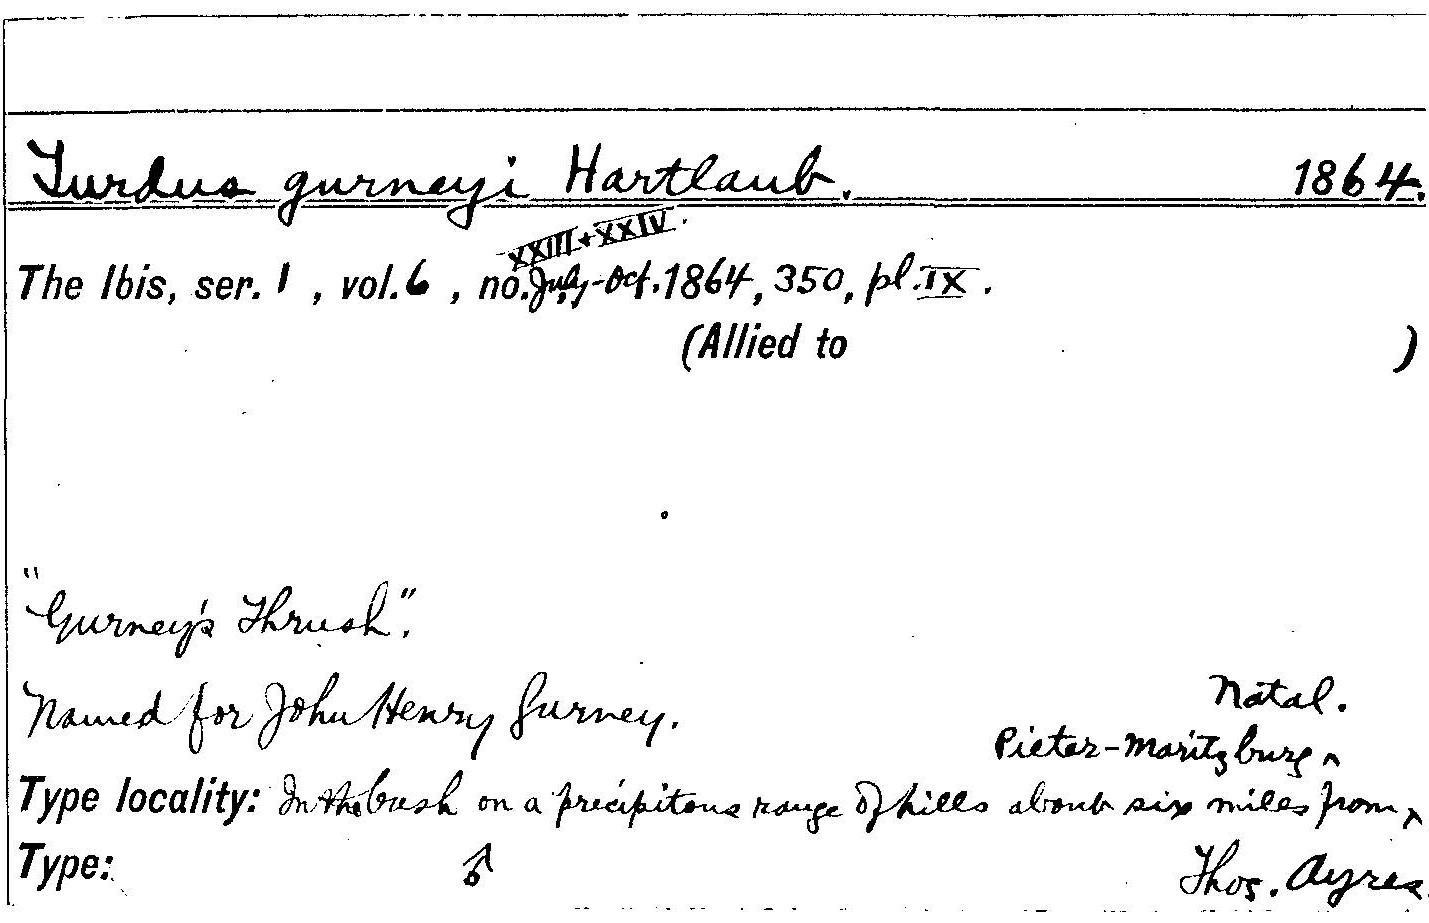 Turdus gurneyi Hartlaub. 1864.
XXIII + XXIV.
The Ibis, ser. 1, vol. 6, no. July-Oct. 1864, 350, pl. IX.
(Allied to )
"Gurney's Thrush".
Named for John Henry Gurney.
Natal.
Pieter-Maritzburg ^
Type locality: In the bush on a precipitous range of hills about six miles from ^
Type: ♂ Thos. Ayres